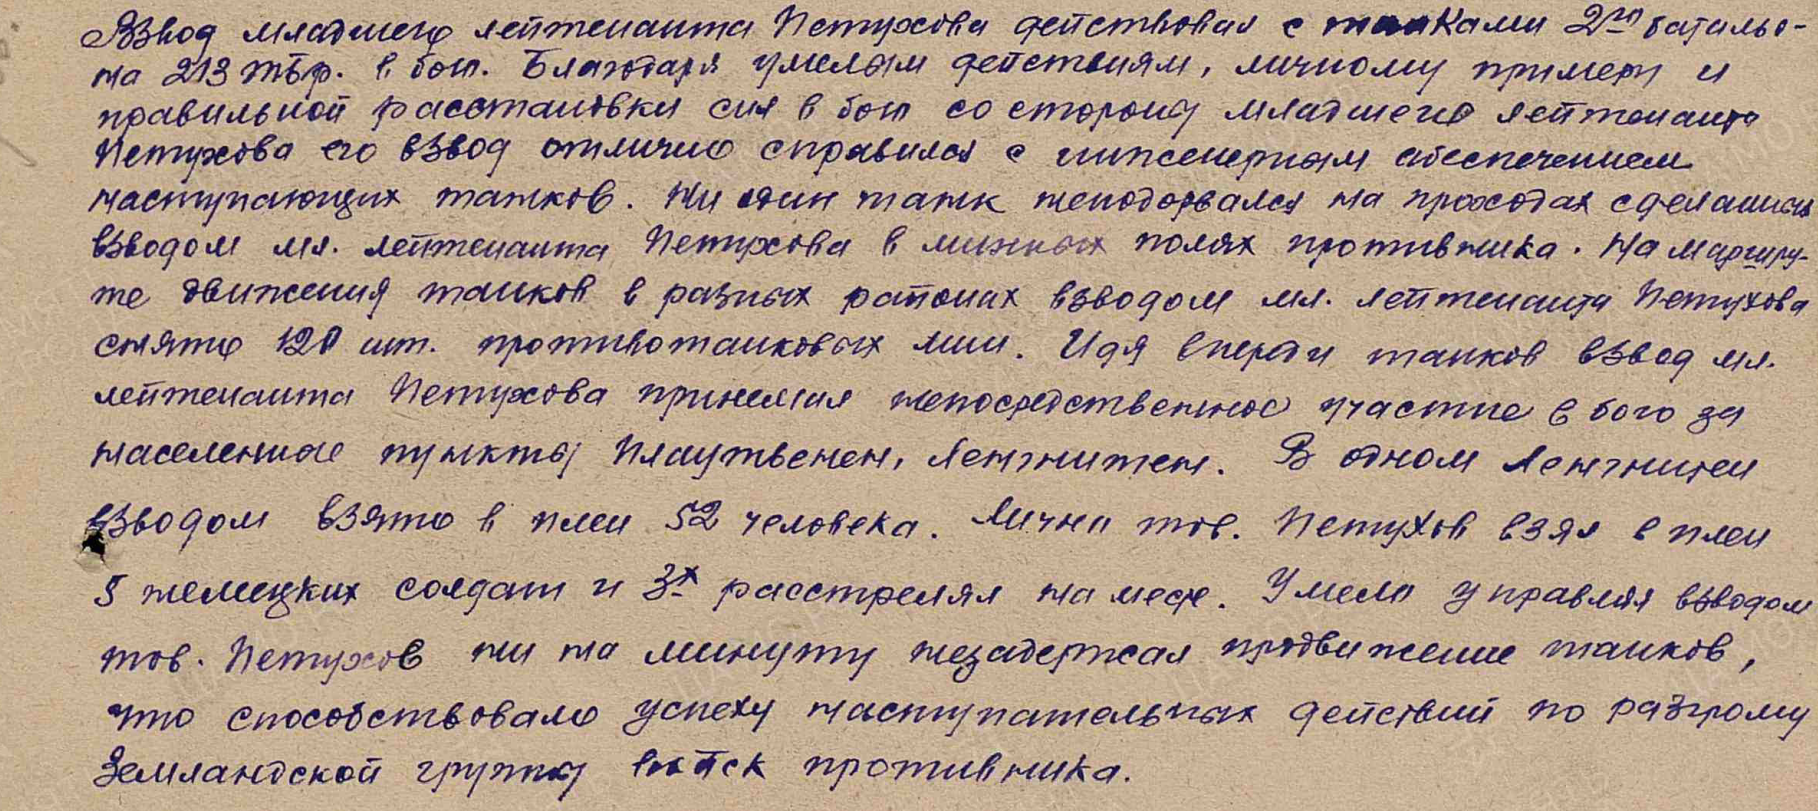 Взвод младшего лейтенанта Петухова действовал с танками 2го батальо-
на 213 тбр. в бою. Благодаря умелым действиям, личному примеру и
правильной расстановки сил в бою со стороны младшего лейтенанта
Петухова его взвод отлично справился с инженерным обеспечением
наступающих танков. Ни один танк неподорвался на проходах сделанных
взводом мл. лейтенанта Петухова в минных полях противника. На маршру-
те движения танков в разных районах взводом мл. лейтенанта Петухова
снято 120 шт. противотанковых мин. Идя впереди танков взвод мл.
лейтенанта Петухова принемал непосредственное участие в бою за
населенные пункты Плаутвенен, Ленгнитен. В одном Ленгнитен
взводом взято в плен 52 человека. Лично тов. Петухов взял в плен
5 немецких солдат и 3х расстрелял на месте. Умело управляя взводом
тов. Петухов ни на минуту незадержал продвижение танков,
что способствовало успеху наступательных действий по разгрому
Земландской группы войск противника.